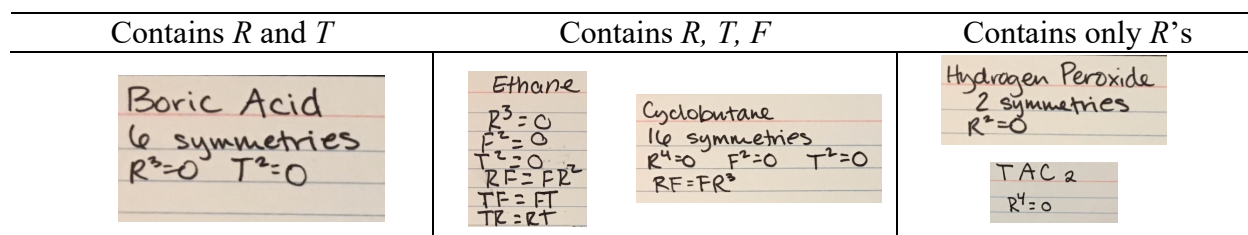 Contains R and T
Contains R, T, F
Contains only R's
Boric Acid
6 symmetries
R³=0 T²=0
Ethane
R³=0
F²=0
T²=0
RF=FR²
TF=FT
TR=RT
Cyclobutane
16 symmetries
R⁴=0 F²=0 T²=0
RF=FR³
Hydrogen Peroxide
2 symmetries
R²=0
TAC2
R⁴=0